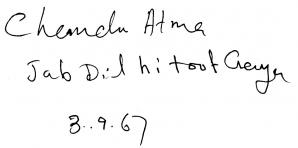 Chandu Atma
Jab Dil hi toot Gaya
3..9.67